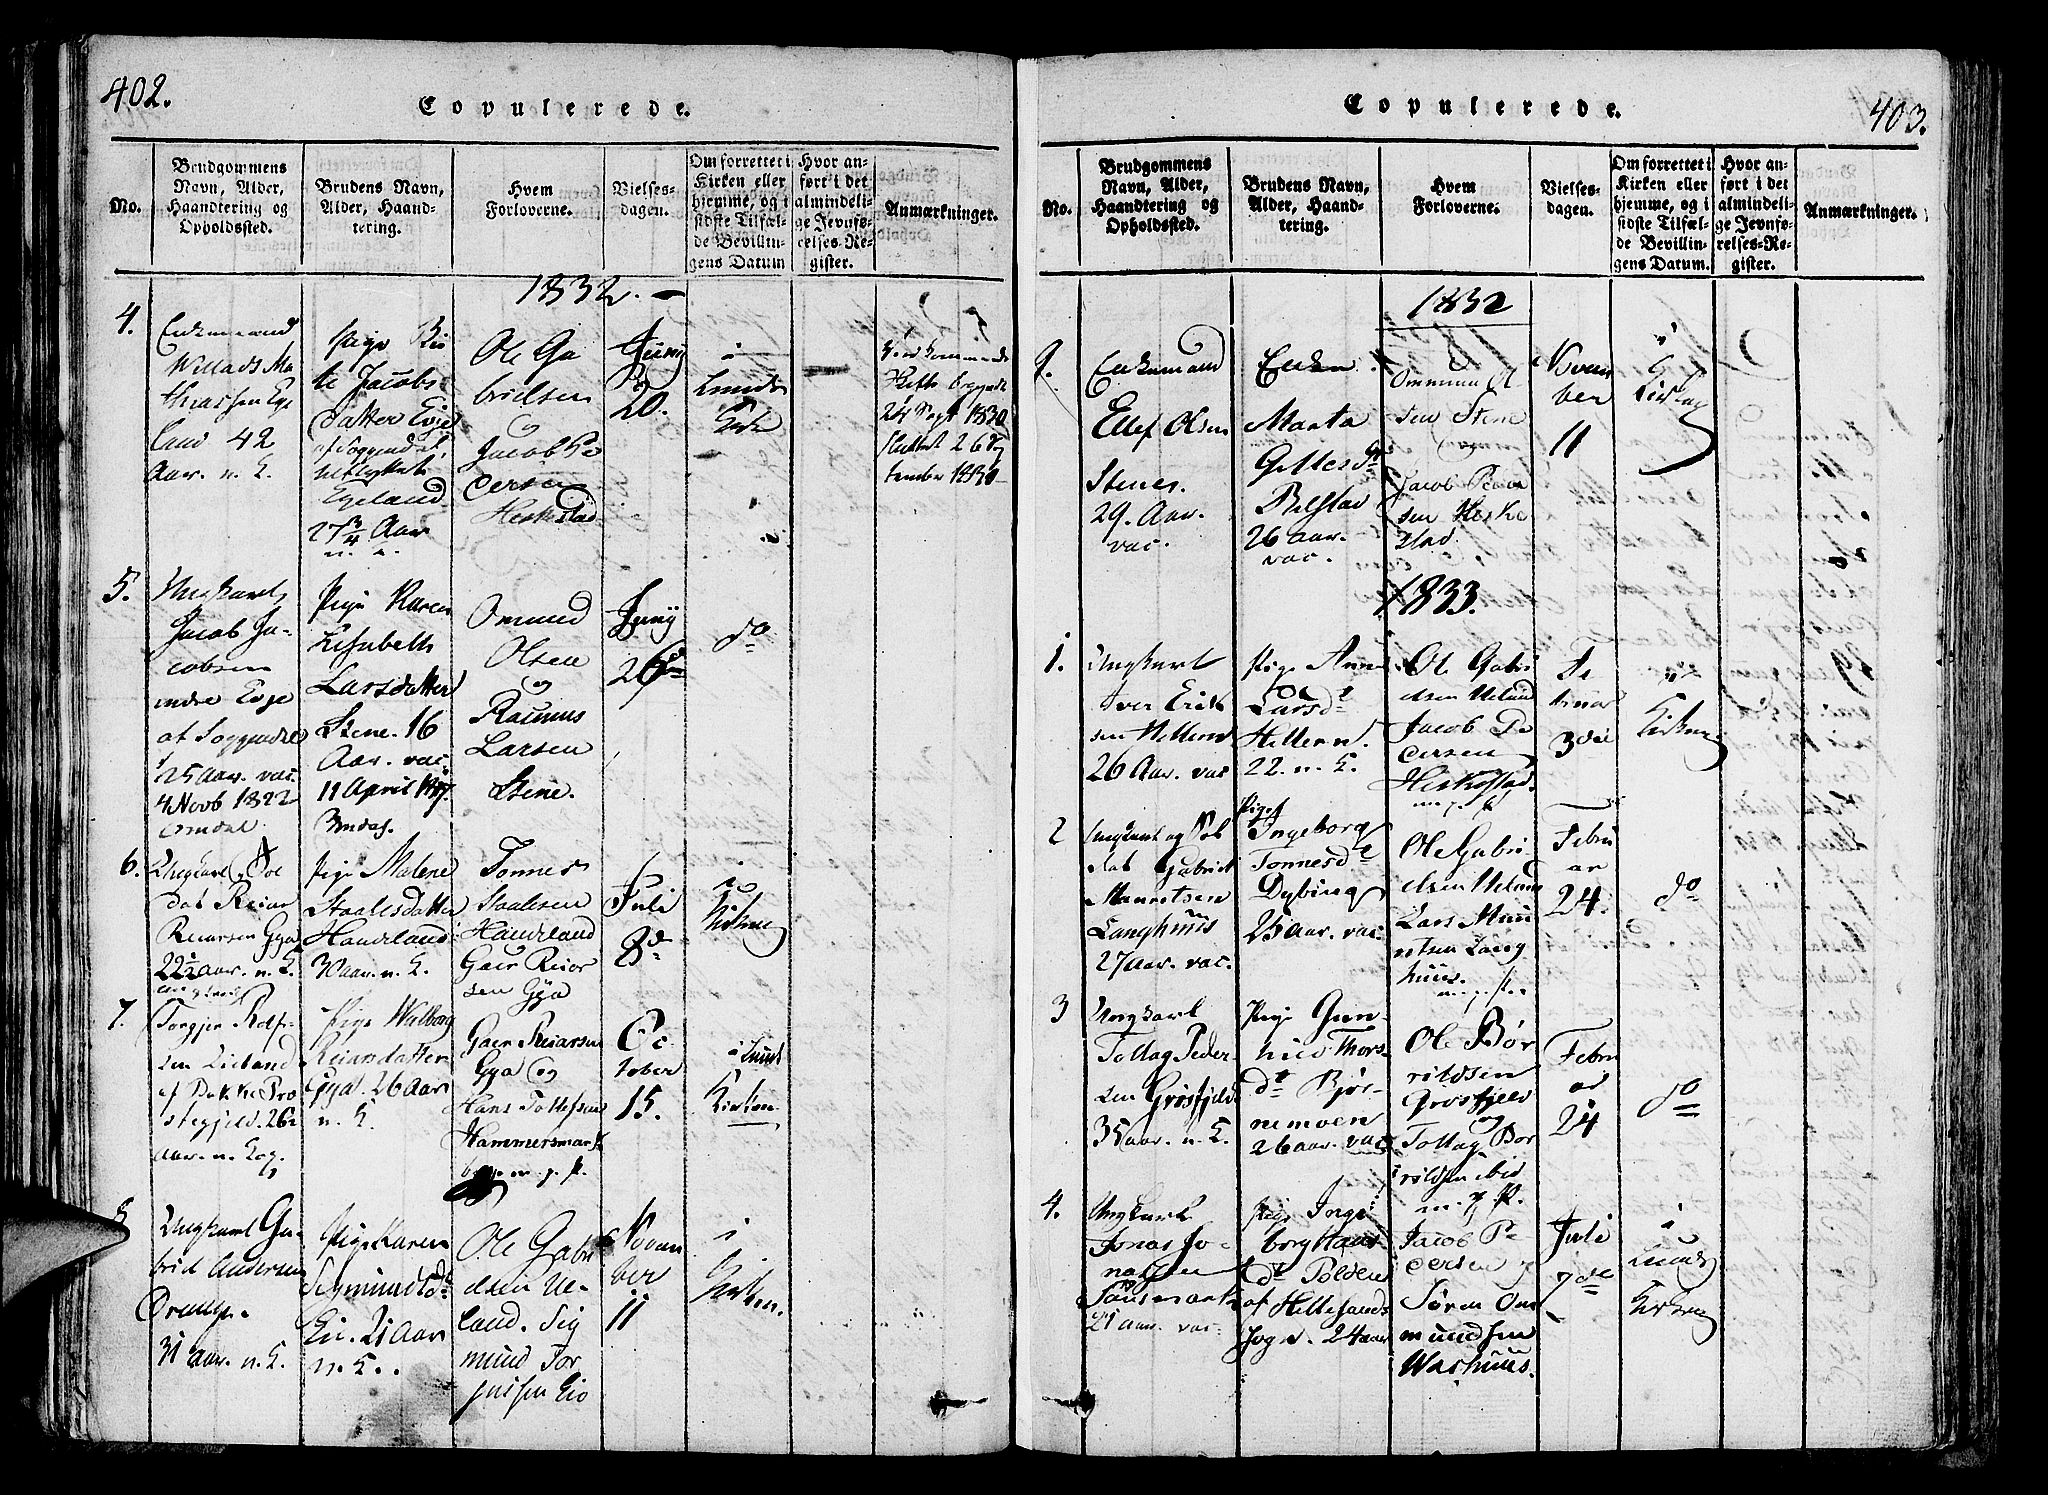 402.
Copulerede.
No.
Brudgommens
Navn, Alder,
Haandtering og
Opholdssted.
Brudens Navn,
Alder, Haand-
tering.
Hvem
Forloverne.
Vielses-
dagen.
Om forrettet i
Kirken eller
hjemme, og i
sidste Tilfæl-
de Bevillin-
gens Datum
Hvor an-
ført i det
almindeli-
ge Jevnfø-
relses-Re-
gister.
Anmærkninger.
1832.
4.
Enkemand
Willads Ma
thiassen Ege
land 42
Aar. n. E.
Pige Bir
te Jacobs
datter Eeie
af Soggendal
Egeland
27 3/4 Aar
n. E.
Ole Ga
brielsen
og
Jacob Pe
dersen
Heskestad
Juny
20.
i
Lunds
Kirke
24 Sept 1830
sluttet 26 Sep
tember 1830
5.
Ungkarl
Jacob Ja-
cobsen
indre Eege
af Soggendal
25 Aar. vac.
4 Novb 1822
Pige Karen
Lisabeth
Larsdatter
Stene. 16
Aar. vac.
11 April
Omund
Olsen
og
Rasmus
Larsen
Stene.
Juny
26
do
6.
Ungkarl Sol
dat Reiar
Reiarsen Gya
22 1/2 aar. n. E.
Pige Malene
Staalesdatter
Haueland
30 aar. n. E.
Tonnes
Staalesen
Haueland
Gaer Reior
sen Gya
Juli
8d
i
Kirken
7.
Torgjer Rolf-
sen Lieland
af Bakke Præ
stegjeld. 26
aar. n. E.
Pige Walborg
Reiarsdatter
Gya. 26 Aar
n. E.
Gaer Reiarsen
Gya og
Hans Tollefsen
Hammersmark
Oc
tober
15.
i Lunds
Kirken
8
Ungkarl Ga-
briel Andersen
Drange.
31 aar. n. E.
Pige Karen
Sigmundsd
Eie. 21 Aar
n. E.
Ole Gabri
elsen Ue-
land. Sig
mund Tor
gersen Eie
Novem
ber
11
i
Kirken.
403.
Copulerede.
No.
Brudgommens
Navn, Alder,
Haandtering og
Opholdssted.
Brudens Navn,
Alder, Haand-
tering.
Hvem
Forloverne.
Vielses-
dagen.
Om forrettet i
Kirken eller
hjemme, og i
sidste Tilfæl-
de Bevillin-
gens Datum.
Hvor an-
ført i det
almindeli-
ge Jevnfø-
relses-Re-
gister.
Anmærkninger.
1832
9.
Enkemand
Ellef Olsen
Stene.
29. Aar.
vac.
Enken
Marta
Gittesdt
Belstad
26 aar.
vac.
Ommund Ol
sen Stene
Jacob Peder
sen Heske
stad
Novem
ber
11
i
Kirken
1833.
1.
Ungkarl
Iver Erik
sen Helleren
26 Aar. vac
Pige Anne
Larsdt
Helleren.
22. n. E.
Ole Gabri
elsen Ueland
Jacob Pe
dersen
Heskestad
Fe
bruar
3die
i
Kirken
2
Ungkarl og Sol
dat Gabriel
Mauritsen
Langhuus
27 Aar. vac.
Pige
Ingeborg
Tonnesdt
Dybing
25 aar. vac.
Ole Gabri
elsen Ueland
Lars Mau
ritsen Lang
huus.
Febru
ar
24.
do
3
Ungkarl
Tollag Peder-
sen Grøsfjeld
35 aar. n. E.
Pige Gun-
hild Thors-
dt Bjør-
nemoen
26 aar. vac.
Ole Bør
rildsen
Grøsfjeld
og
Tollag Bor
rildsen ibid
Febru
ar
24
do
4.
Ungkarl
Jonas Jo-
nassen
21 aar. vac.
Pige Inge
borg Hans
dt Polden
af Hittesunds
Sogn. 24 aar
Jacob Pe
dersen og
Søren Om
mundsen
Washuus.
Juli
7de
i
Lunds
Kirken